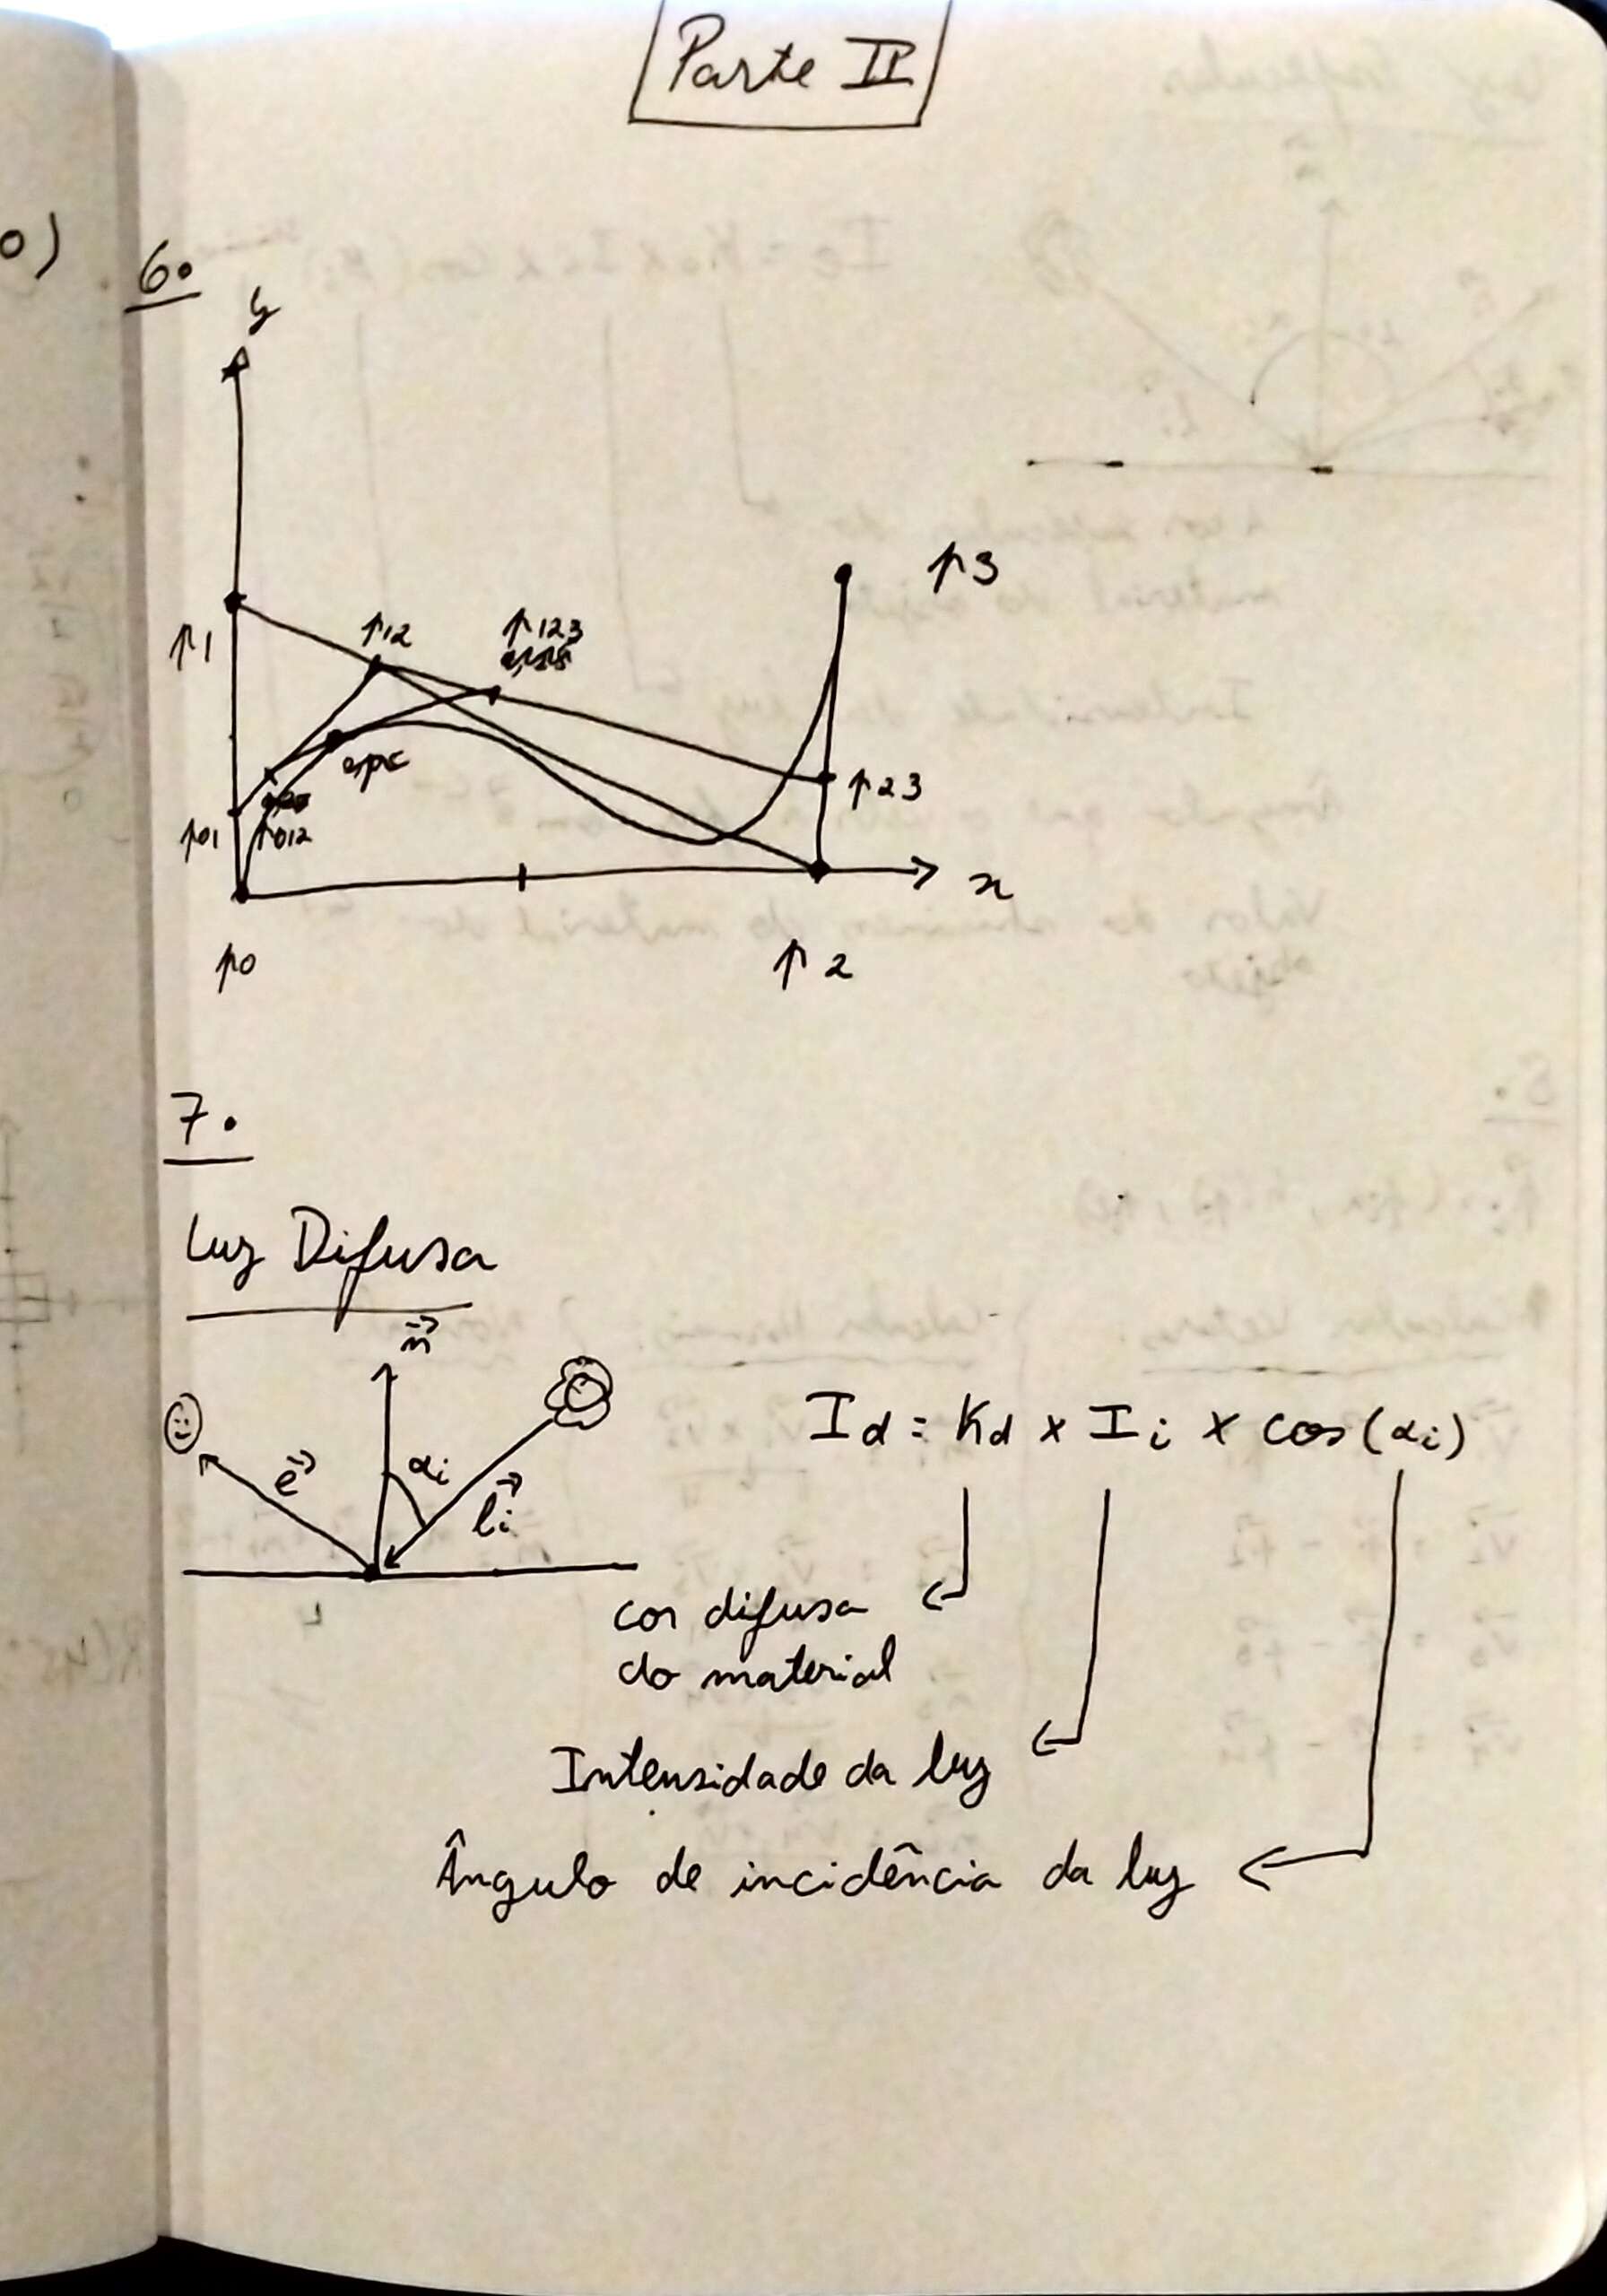 Parte II
o)
6.
y
p3
p12
p123
p1
p23
p01
p012
x
p0
p2
7.
Luz Difusa
n
αi
e
li
Id = Kd x Ii x cos(αi)
cor difusa
do material
Intensidade da luz
Ângulo de incidência da luz